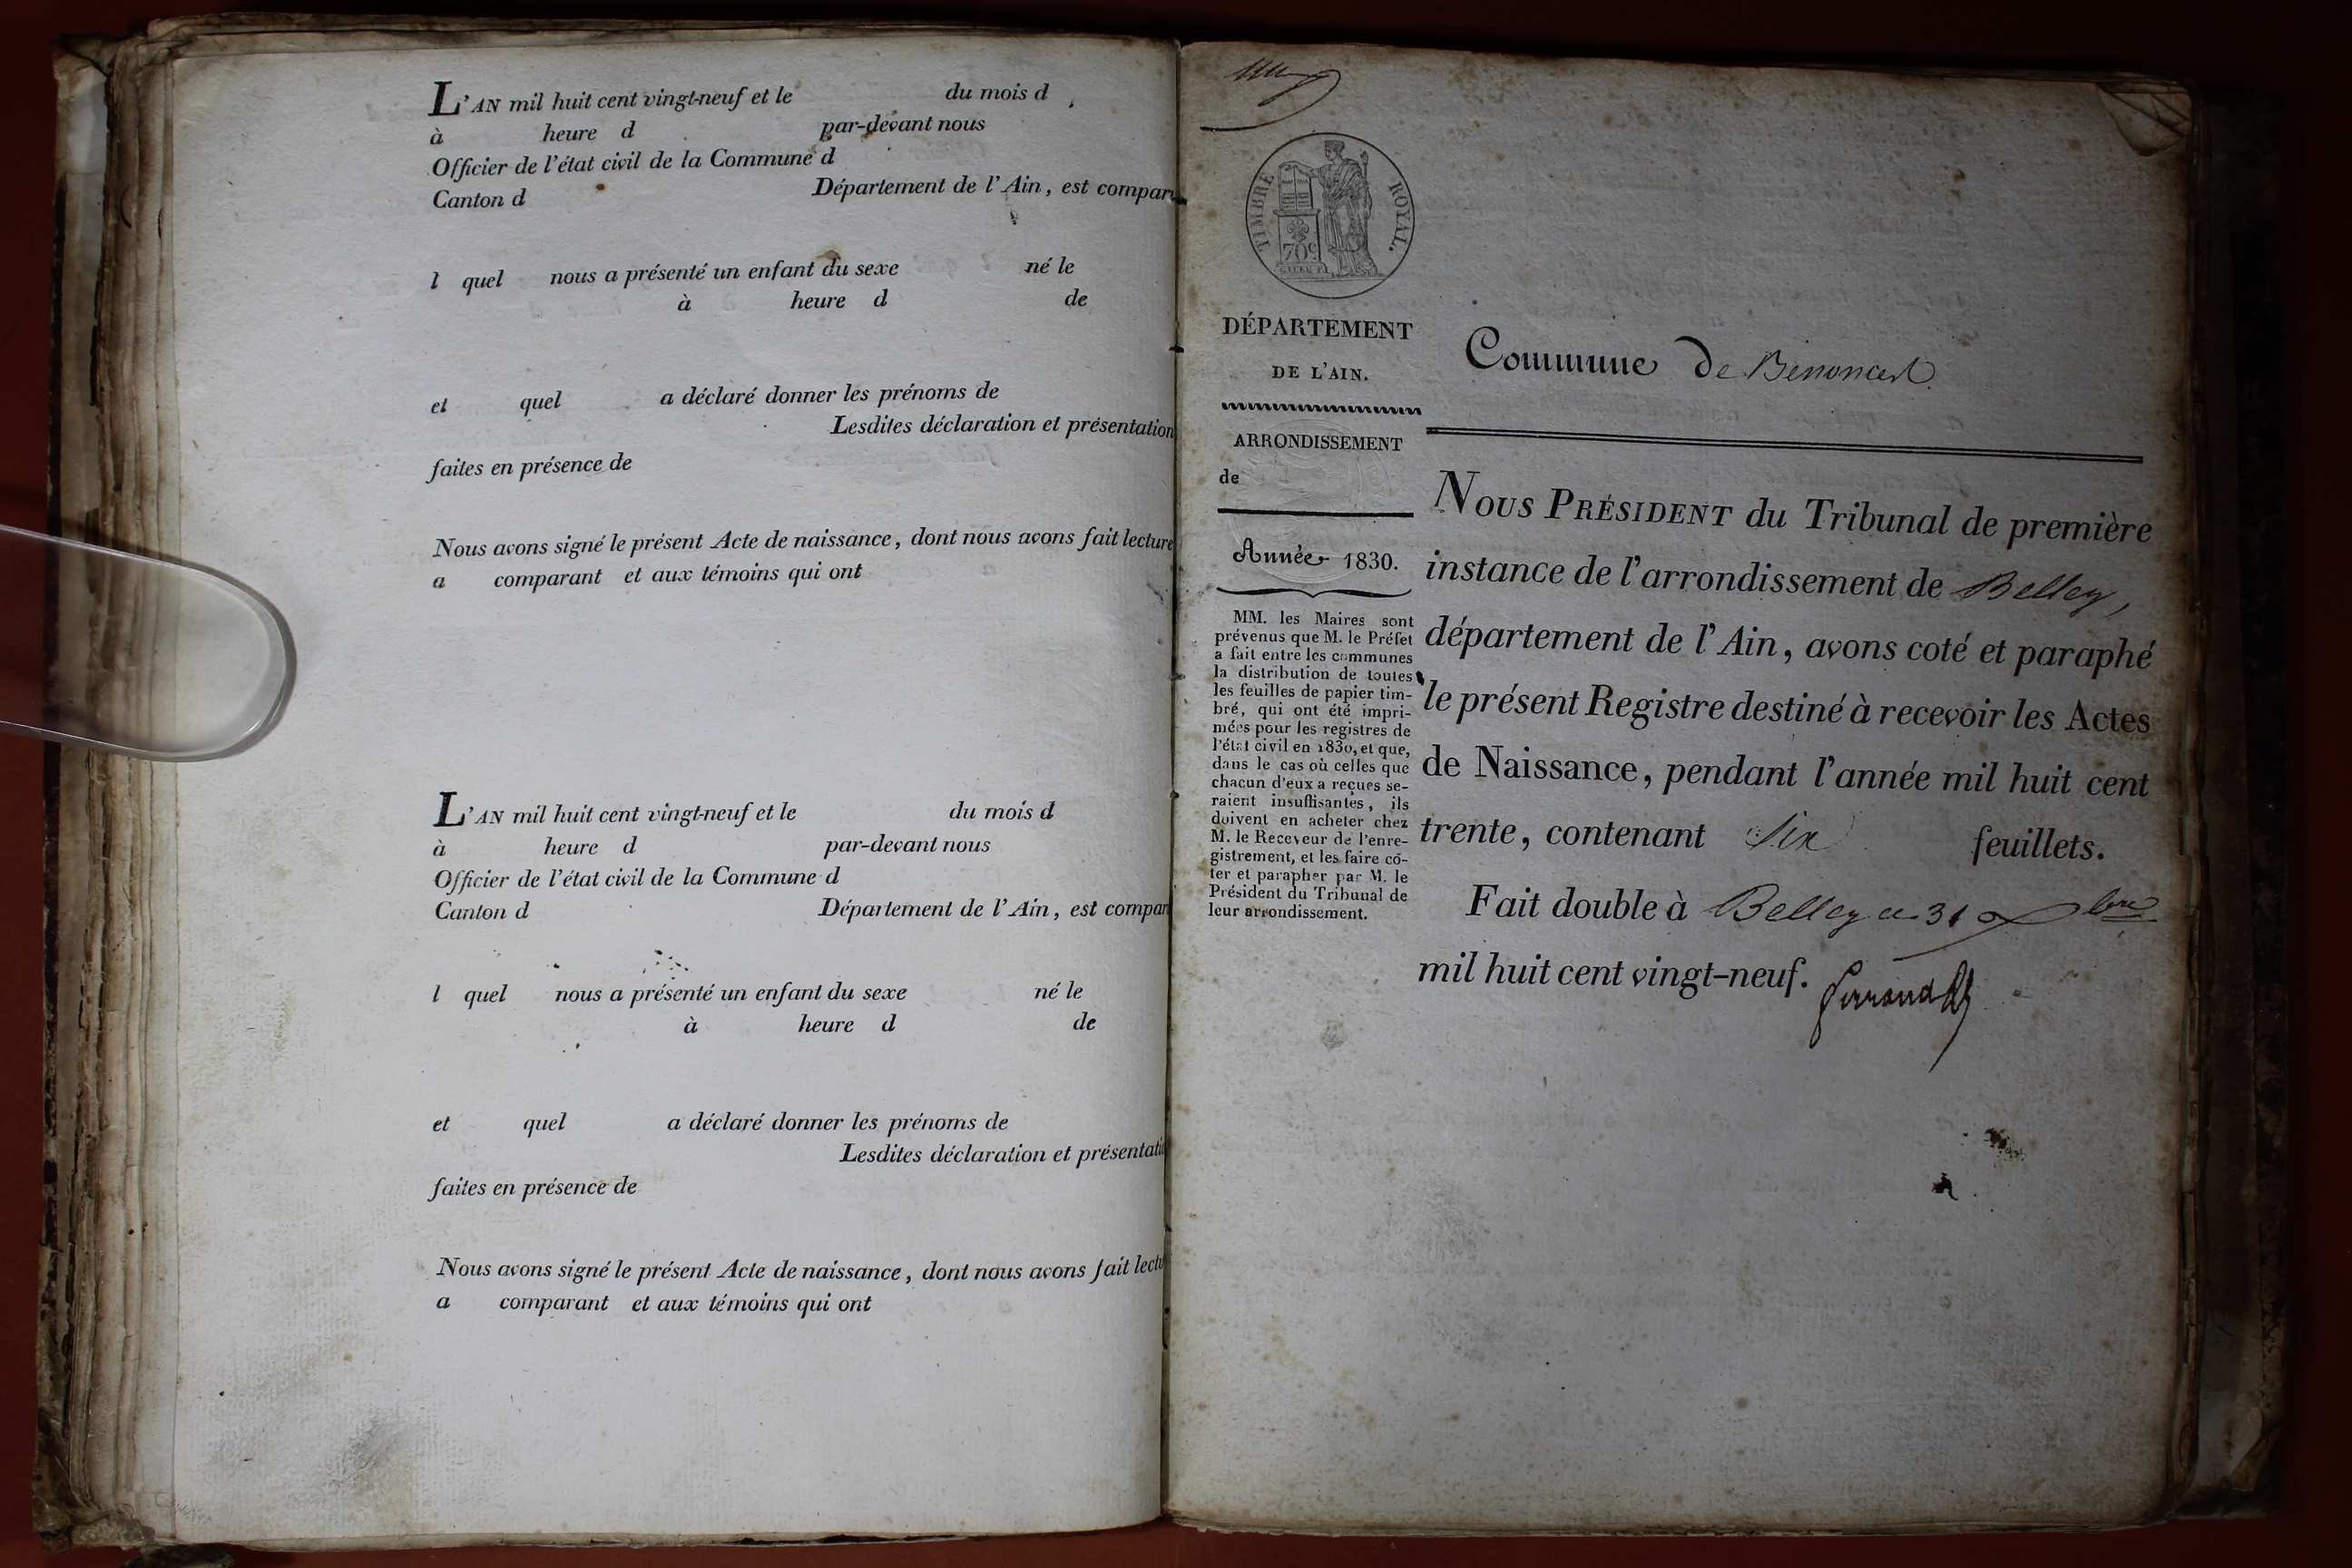 L'AN mil huit cent vingt-neuf et le du mois d
à heure d par-devant nous
Officier de l'état civil de la Commune d
Canton d Département de l'Ain, est compar
l quel nous a présenté un enfant du sexe né le
à heure d de
et quel a déclaré donner les prénoms de
Lesdites déclaration et présentation
faites en présence de
Nous avons signé le présent Acte de naissance, dont nous avons fait lecture
a comparant et aux témoins qui ont
L'AN mil huit cent vingt-neuf et le du mois d
à heure d par-devant nous
Officier de l'état civil de la Commune d
Canton d Département de l'Ain, est compar
l quel nous a présenté un enfant du sexe né le
à heure d de
et quel a déclaré donner les prénoms de
Lesdites déclaration et présentati
faites en présence de
Nous avons signé le présent Acte de naissance, dont nous avons fait lectu
a comparant et aux témoins qui ont
TIMBRE ROYAL.
70c
DÉPARTEMENT
DE L'AIN.
ARRONDISSEMENT
de
Année 1830.
MM. les Maires sont
prévenus que M. le Préfet
a fait entre les communes
la distribution de toutes
les feuilles de papier tim-
bré, qui ont été impri-
mées pour les registres de
l'état civil en 1830, et que,
dans le cas où celles que
chacun d'eux a reçues se-
raient insuffisantes, ils
doivent en acheter chez
M. le Receveur de l'enre-
gistrement, et les faire co-
ter et parapher par M. le
Président du Tribunal de
leur arrondissement.
Commune de Benonces
NOUS PRÉSIDENT du Tribunal de première
instance de l'arrondissement de Belley,
département de l'Ain, avons coté et paraphé
le présent Registre destiné à recevoir les Actes
de Naissance, pendant l'année mil huit cent
trente, contenant Six feuillets.
Fait double à Belley ce 31 Xbre
mil huit cent vingt-neuf.